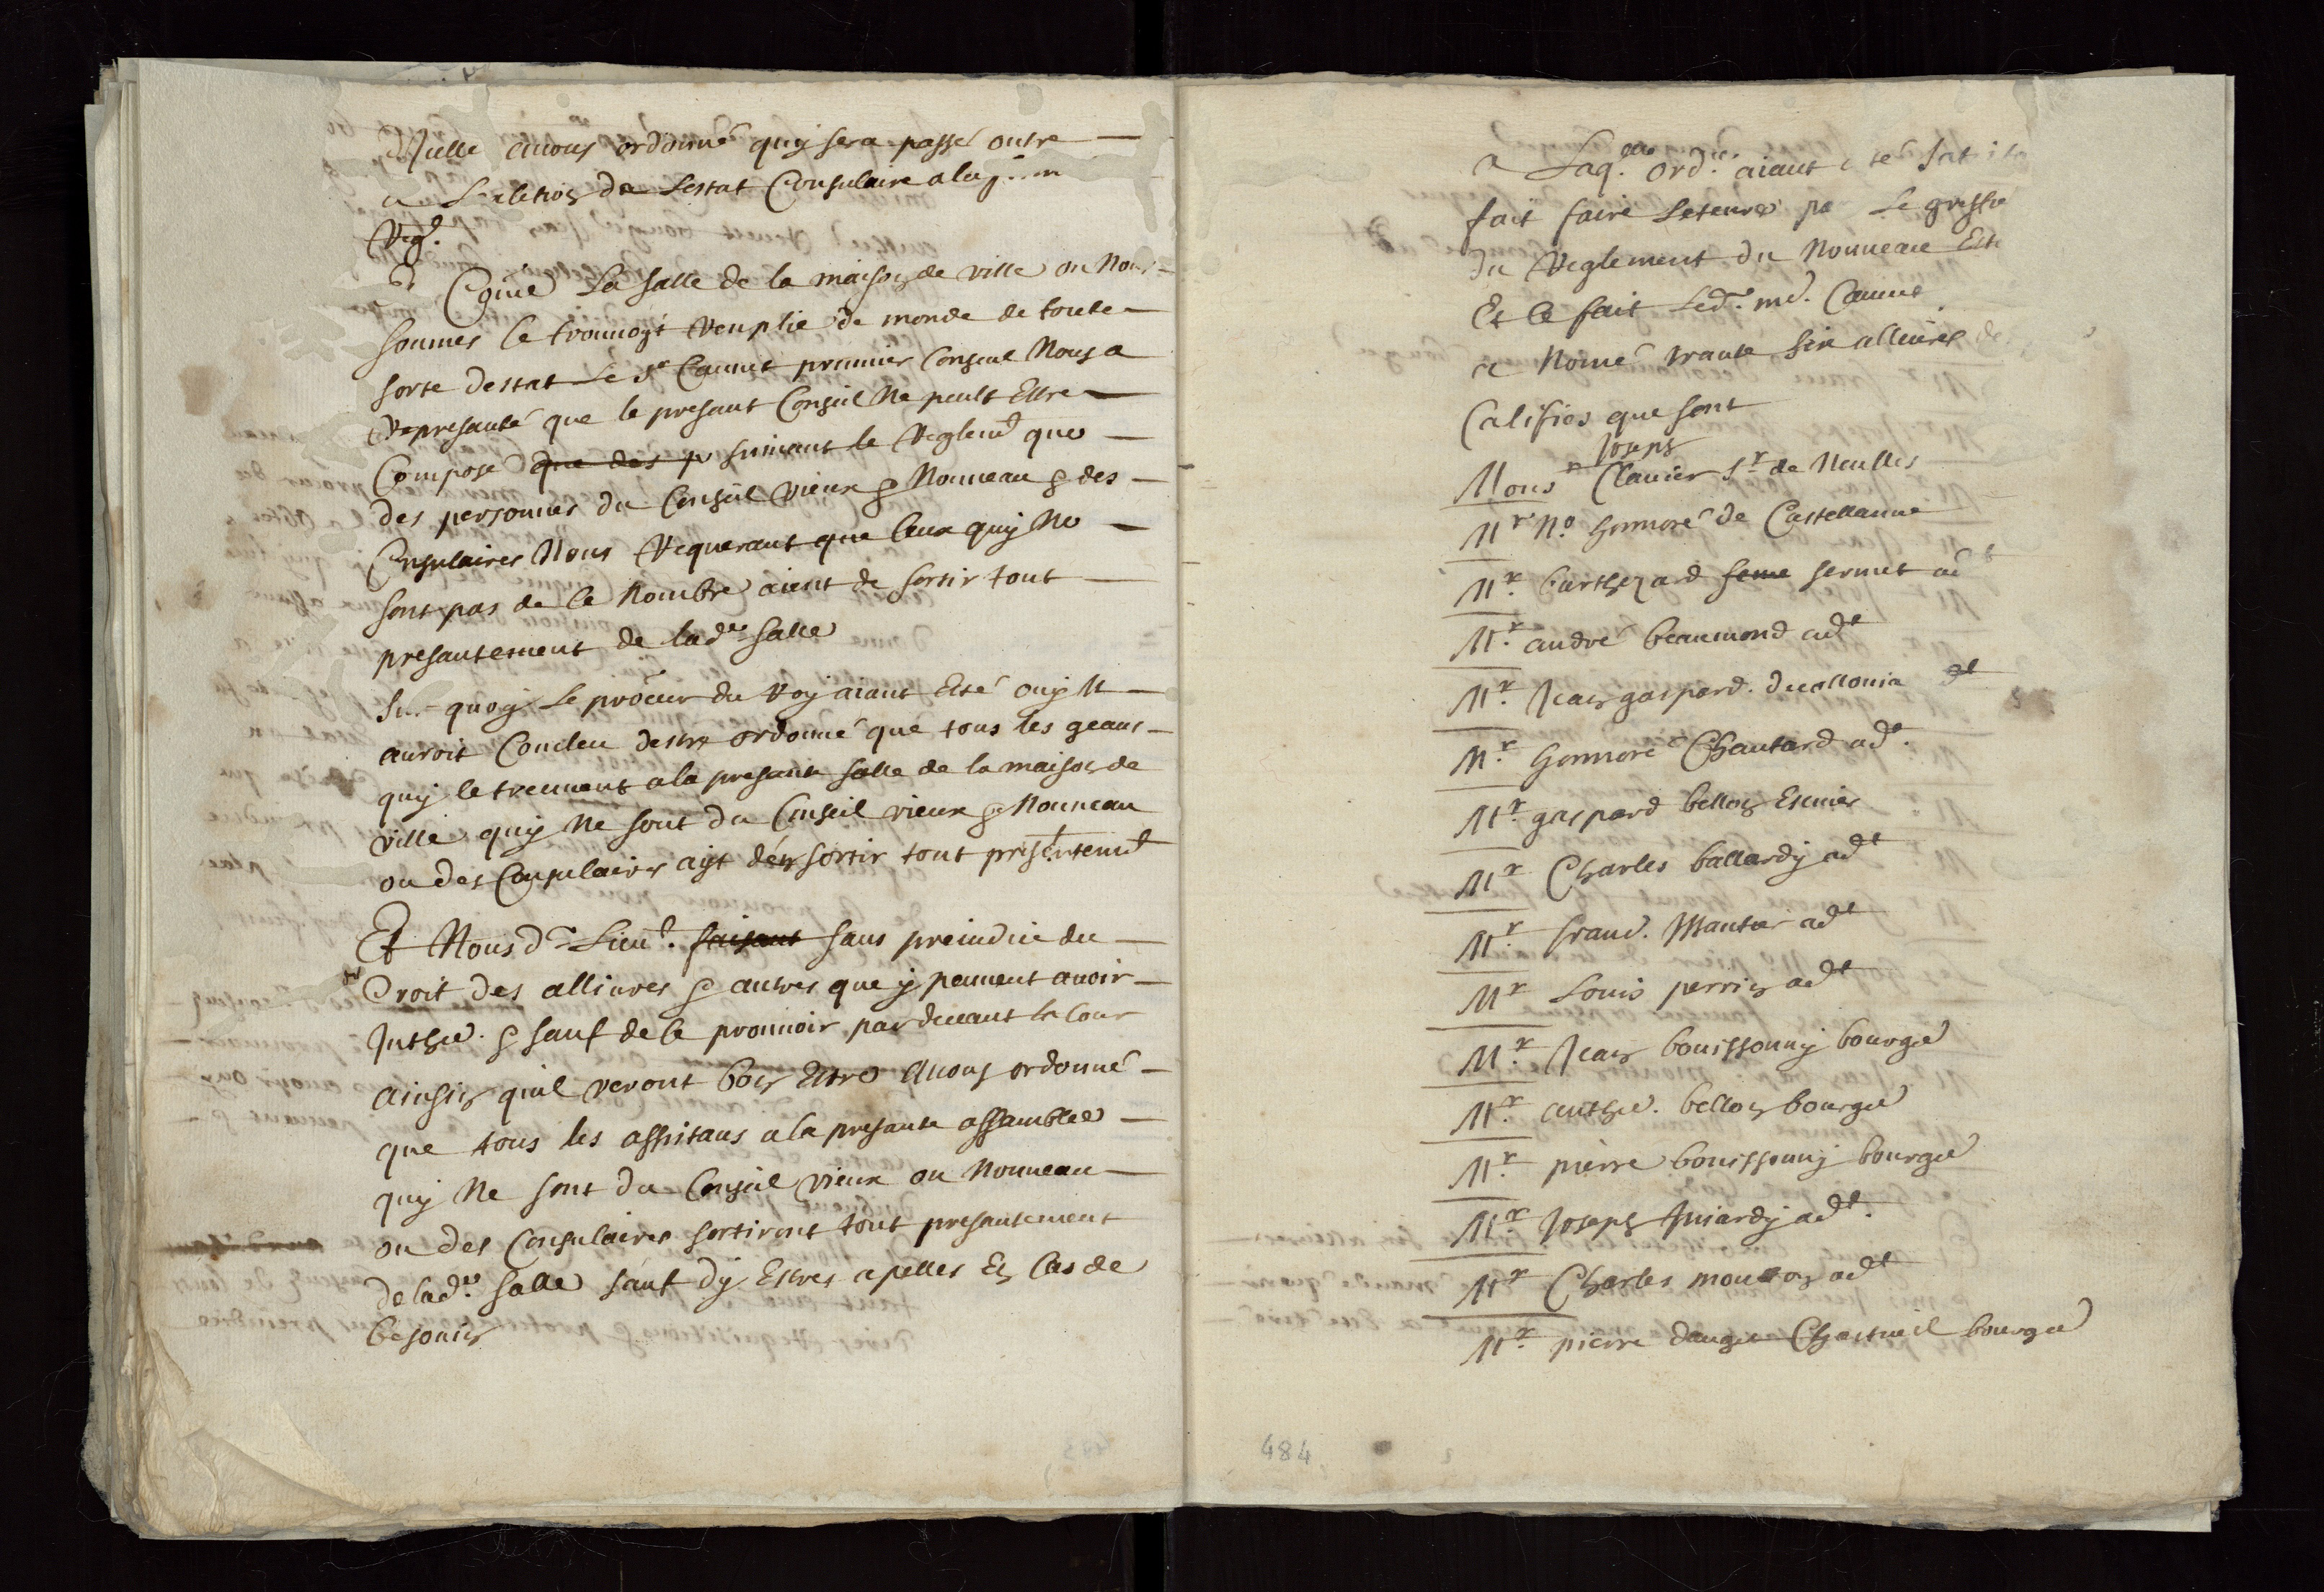 Nulle avons ordonné quy sera passé outre
a Lelection de Lestat Consulaire a la
Reg.
Et Cõme La salle de la maison de ville ou Nous
sommes se trouvoyt remplie de monde de toute
sorte destat Le sr Cauvet premier Consul Nous a
representé que le presant Conseil Ne peult Estre
Composé que des p suivant le Reglemt que
des personnes du Conseil vieux & Nouveau & des
Consulaires Nous Requerant que ceux quy Ne
sont pas de ce Nombre aient de sortir tout
presantement de lade salle
Sur quoy Le procur du Roy aiant Esté ouy Il
auroit Concleu destre ordonné que tous les geans
quy se treuvent a la presante salle de la maison de
ville quy Ne sont du Conseil vieux & Nouveau
ou des Consulaires ayt den sortir tout presentemt
Et Nous d. Lieut. faisant sans preiudice du
Droit des allivres & autres que y peuvent avoir
Inthe. & sauf de se prouvoir pardevant la Cour
ainsin quil veront bon Estre avons ordonné
que tous les assistans a la presante assamblee
quy Ne sont du Conseil vieux ou Nouveau
ou des Consulaires sortiront tout presantement
de lade. salle sauf dy Estres apelles En Cas de
besoins
a Laqelle. orde. aiant esté satis
fait faire Lecture par Le greffie
du Reglement du Nouveau
Et Ce fait Led. md. Cauvet
a Nomé trante six allivres de
Califies que sont
Joseph
Monsr Clavier sr de Neulles
Mr No. honnoré de Castellanne
Mr. barthezard feme fermet
Mr. andre beaumond adt
Mr. Jean gaspard. decollonia
Mr. honnoré Chautard adt.
Mr. gaspard bellon Escuier
Mr Charles ballardy adt
Mr. francs. Mautier adt
Mr Louis perrin adt
Mr. Jean bouissouny bourgs
Mr. anthe. bellon bourgs
Mr. pierre bouissouny bourgs
Mr. Joseph Juiardy adt.
Mr Charles mouton adt
Mr. pierre dauge Chasteuil bourgs
484